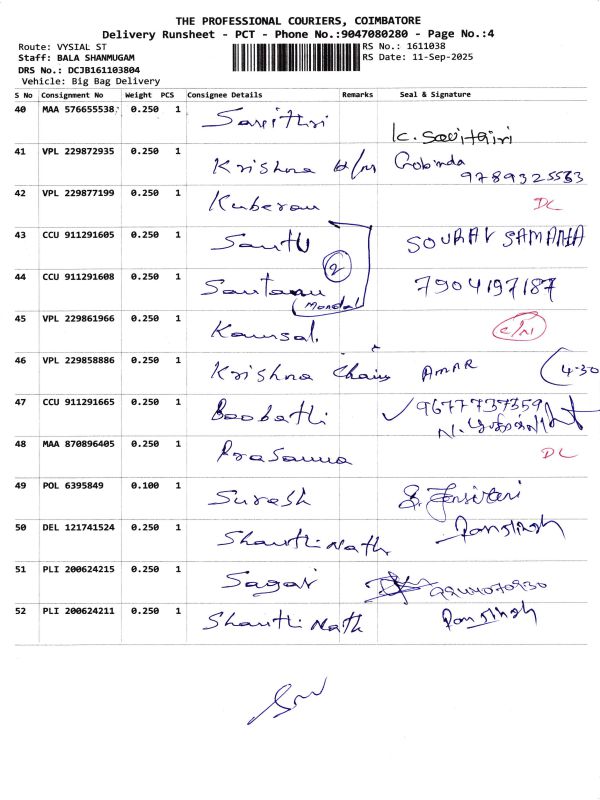 THE PROFESSIONAL COURIERS, COIMBATORE
Delivery Runsheet - PCT - Phone No.:9047080280 - Page No.:4
Route: VYSIAL ST RS No.: 1611038
Staff: BALA SHANMUGAM RS Date: 11-Sep-2025
DRS No.: DCJB161103804
Vehicle: Big Bag Delivery
S No Consignment No Weight PCS Consignee Details Remarks Seal & Signature
40 MAA 576655538 0.250 1 Savithri K. Savithiri
41 VPL 229872935 0.250 1 Krishna H/M Gobinda
9789325533
42 VPL 229877199 0.250 1 Kuberan DC
43 CCU 911291605 0.250 1 Santu SOURAV SAMANTA
2
44 CCU 911291608 0.250 1 Santanu 7904197187
(Mondal)
45 VPL 229861966 0.250 1 Kamsal.
46 VPL 229858886 0.250 1 Krishna Chains AMAR 4.30
47 CCU 911291665 0.250 1 9677737359
48 MAA 870896405 0.250 1 Prasanna DC
49 POL 6395849 0.100 1 Suresh
50 DEL 121741524 0.250 1 Shanthi Nath
51 PLI 200624215 0.250 1 Sagar
52 PLI 200624211 0.250 1 Shanthi Nath